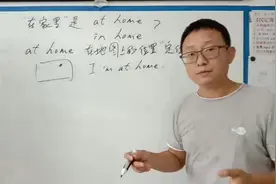 在家里"是 at home ?
in home
at home 在地图上的位置"定位
I'm at home.